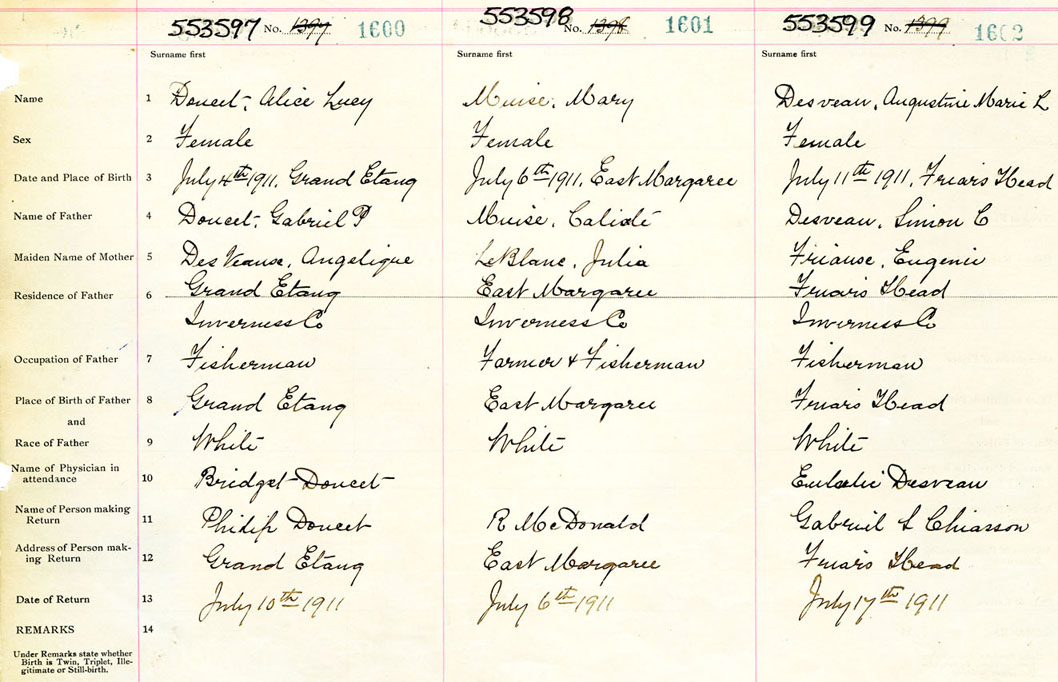 553597 No. 1397 1600 553598 No. 1398 1601 553599 No. 1399 1602
Surname first Surname first Surname first
Name 1 Doucet, Alice Lucy Muise, Mary Desveau, Augustine Marie L
Sex 2 Female Female Female
Date and Place of Birth 3 July 4th 1911, Grand Etang July 6th 1911, East Margaree July 11th 1911, Friars Head
Name of Father 4 Doucet, Gabriel P Muise, Calidé Desveau, Simon C
Maiden Name of Mother 5 DesVeause, Angelique LeBlanc, Julia Friause, Eugenie
Residence of Father 6 Grand Etang East Margaree Friars Head
Inverness Co Inverness Co Inverness Co
Occupation of Father 7 Fisherman Farmer & Fisherman Fisherman
Place of Birth of Father 8 Grand Etang East Margaree Friars Head
and
Race of Father 9 White White White
Name of Physician in
attendance 10 Bridget Doucet Eulalie Desveau
Name of Person making
Return 11 Philip Doucet R McDonald Gabriel S Chiasson
Address of Person mak-
ing Return 12 Grand Etang East Margaree Friars Head
Date of Return 13 July 10th 1911 July 6th 1911 July 17th 1911
REMARKS 14
Under Remarks state whether
Birth is Twin, Triplet, Ille-
gitimate or Still-birth.